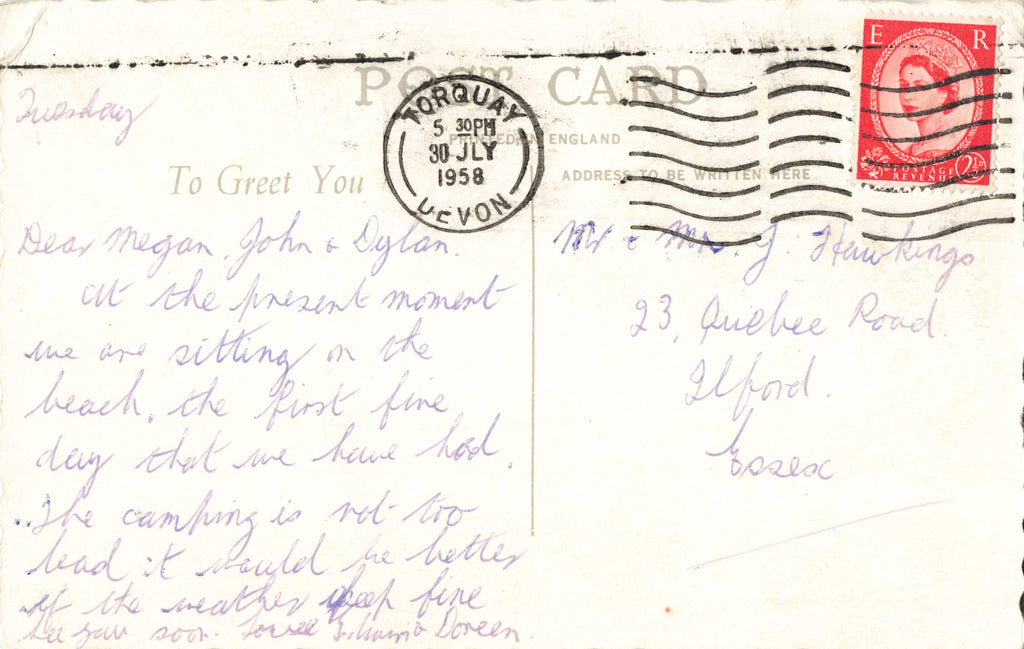 POST CARD
PRINTED IN ENGLAND
To Greet You
ADDRESS TO BE WRITTEN HERE
TORQUAY
5 30 PM
30 JLY
1958
DEVON
E R
POSTAGE
REVENUE
2½D
Tuesday
Dear Megan, John & Dylan.
At the present moment
we are sitting on the
beach, the first fine
day that we have had.
The camping is not too
bad it would be better
if the weather keep fine
See you soon. Doreen.
Mr & Mrs. J. Hawkings
23, Quebec Road.
Ilford.
Essex